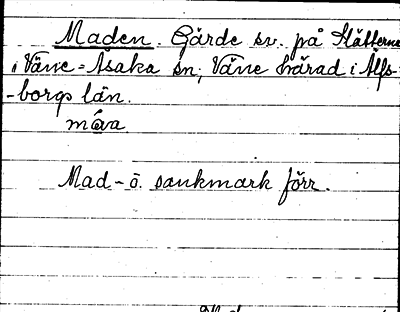 Maden. Gärde sv. på Slätterna
i Väne-Åsaka sn, Väne härad i Älfs-
-borgs län.
måva
Mad- o. sankmark förr.